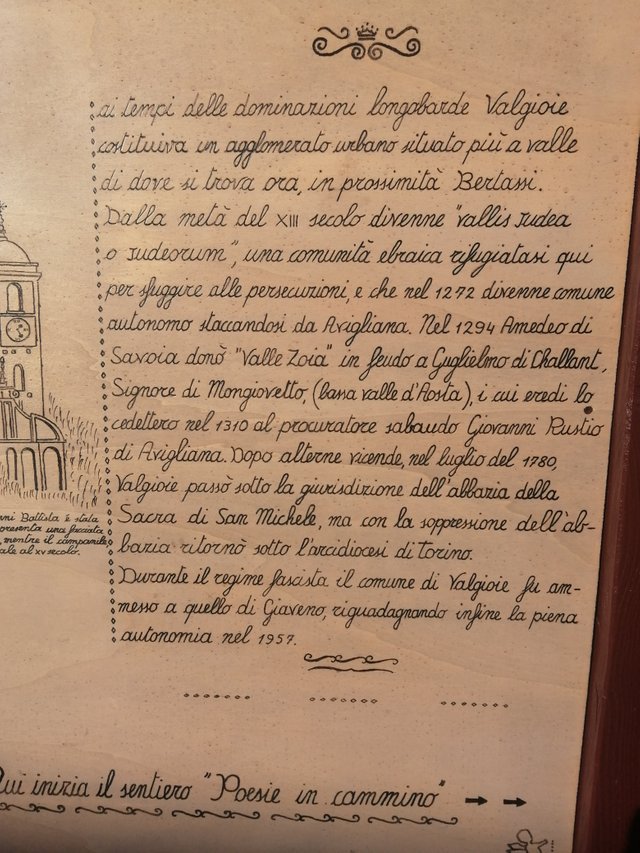 ai tempi delle dominazioni longobarde Valgioie
costituiva un agglomerato urbano situato più a valle
di dove si trova ora, in prossimità Bertassi.
Dalla metà del XIII secolo divenne "vallis Judea
o Judeorum", una comunità ebraica rifugiatasi qui
per sfuggire alle persecuzioni, e che nel 1272 divenne comune
autonomo staccandosi da Avigliana. Nel 1294 Amedeo di
Savoia donò "Valle Zoia" in feudo a Guglielmo di Challant,
Signore di Mongiovetto, (bassa valle d'Aosta), i cui eredi lo
cedettero nel 1310 al procuratore sabaudo Giovanni Rustio
di Avigliana. Dopo alterne vicende, nel luglio del 1780,
Valgioie passò sotto la giurisdizione dell'abbazia della
Sacra di San Michele, ma con la soppressione dell'ab-
bazia ritornò sotto l'arcidiocesi di Torino.
Durante il regime fascista il comune di Valgioie fu am-
messo a quello di Giaveno, riguadagnando infine la piena
autonomia nel 1957.
nni Battista è stata
presenta una facciata
, mentre il campanile
ale al XV secolo.
Qui inizia il sentiero "Poesie in cammino" → →